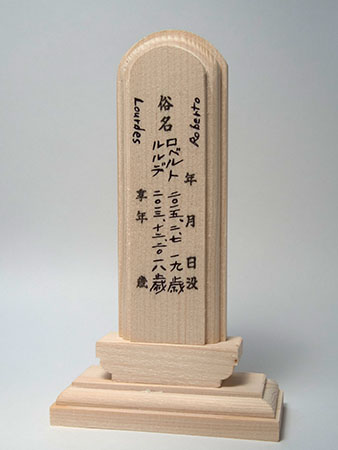 Roberto
年 月 日没
俗名
ロベルト 二〇一五、二、七 一九歳
ルルデ 二〇一三、十二、二〇 一八歳
Lourdes
享年 歳